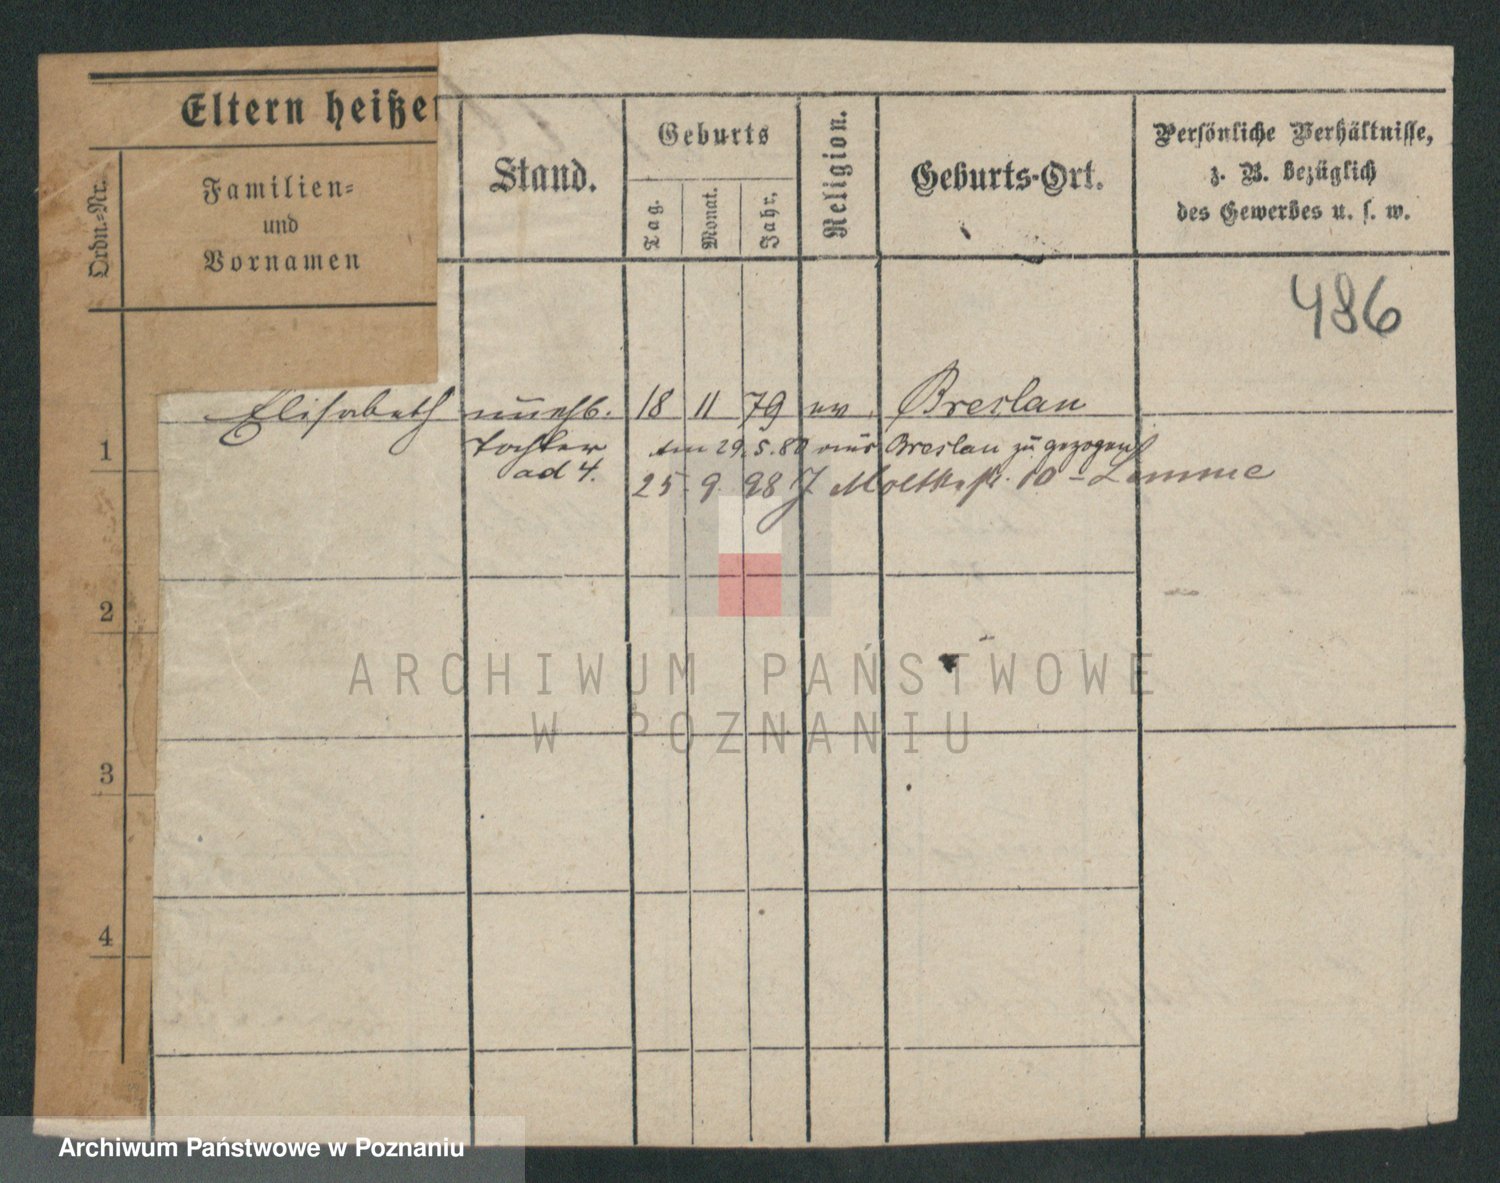 Eltern heißen
Ordn.-Nr.
Familien-
und
Vornamen
Stand.
Geburts
Tag.
Monat.
Jahr.
Religion.
Geburts-Ort.
Persönliche Verhältnisse,
z. B. bezüglich
des Gewerbes u. s. w.
486
Elisabeth unehl. 18 11 79 ev. Breslau
1
Tochter am 29.5.80 aus Breslau zugezogen
ad 4.
25 9 98 J Moltkestr. 10 -
2
ARCHIWUM PAŃSTWOWE
W POZNANIU
3
4
Archiwum Państwowe w Poznaniu